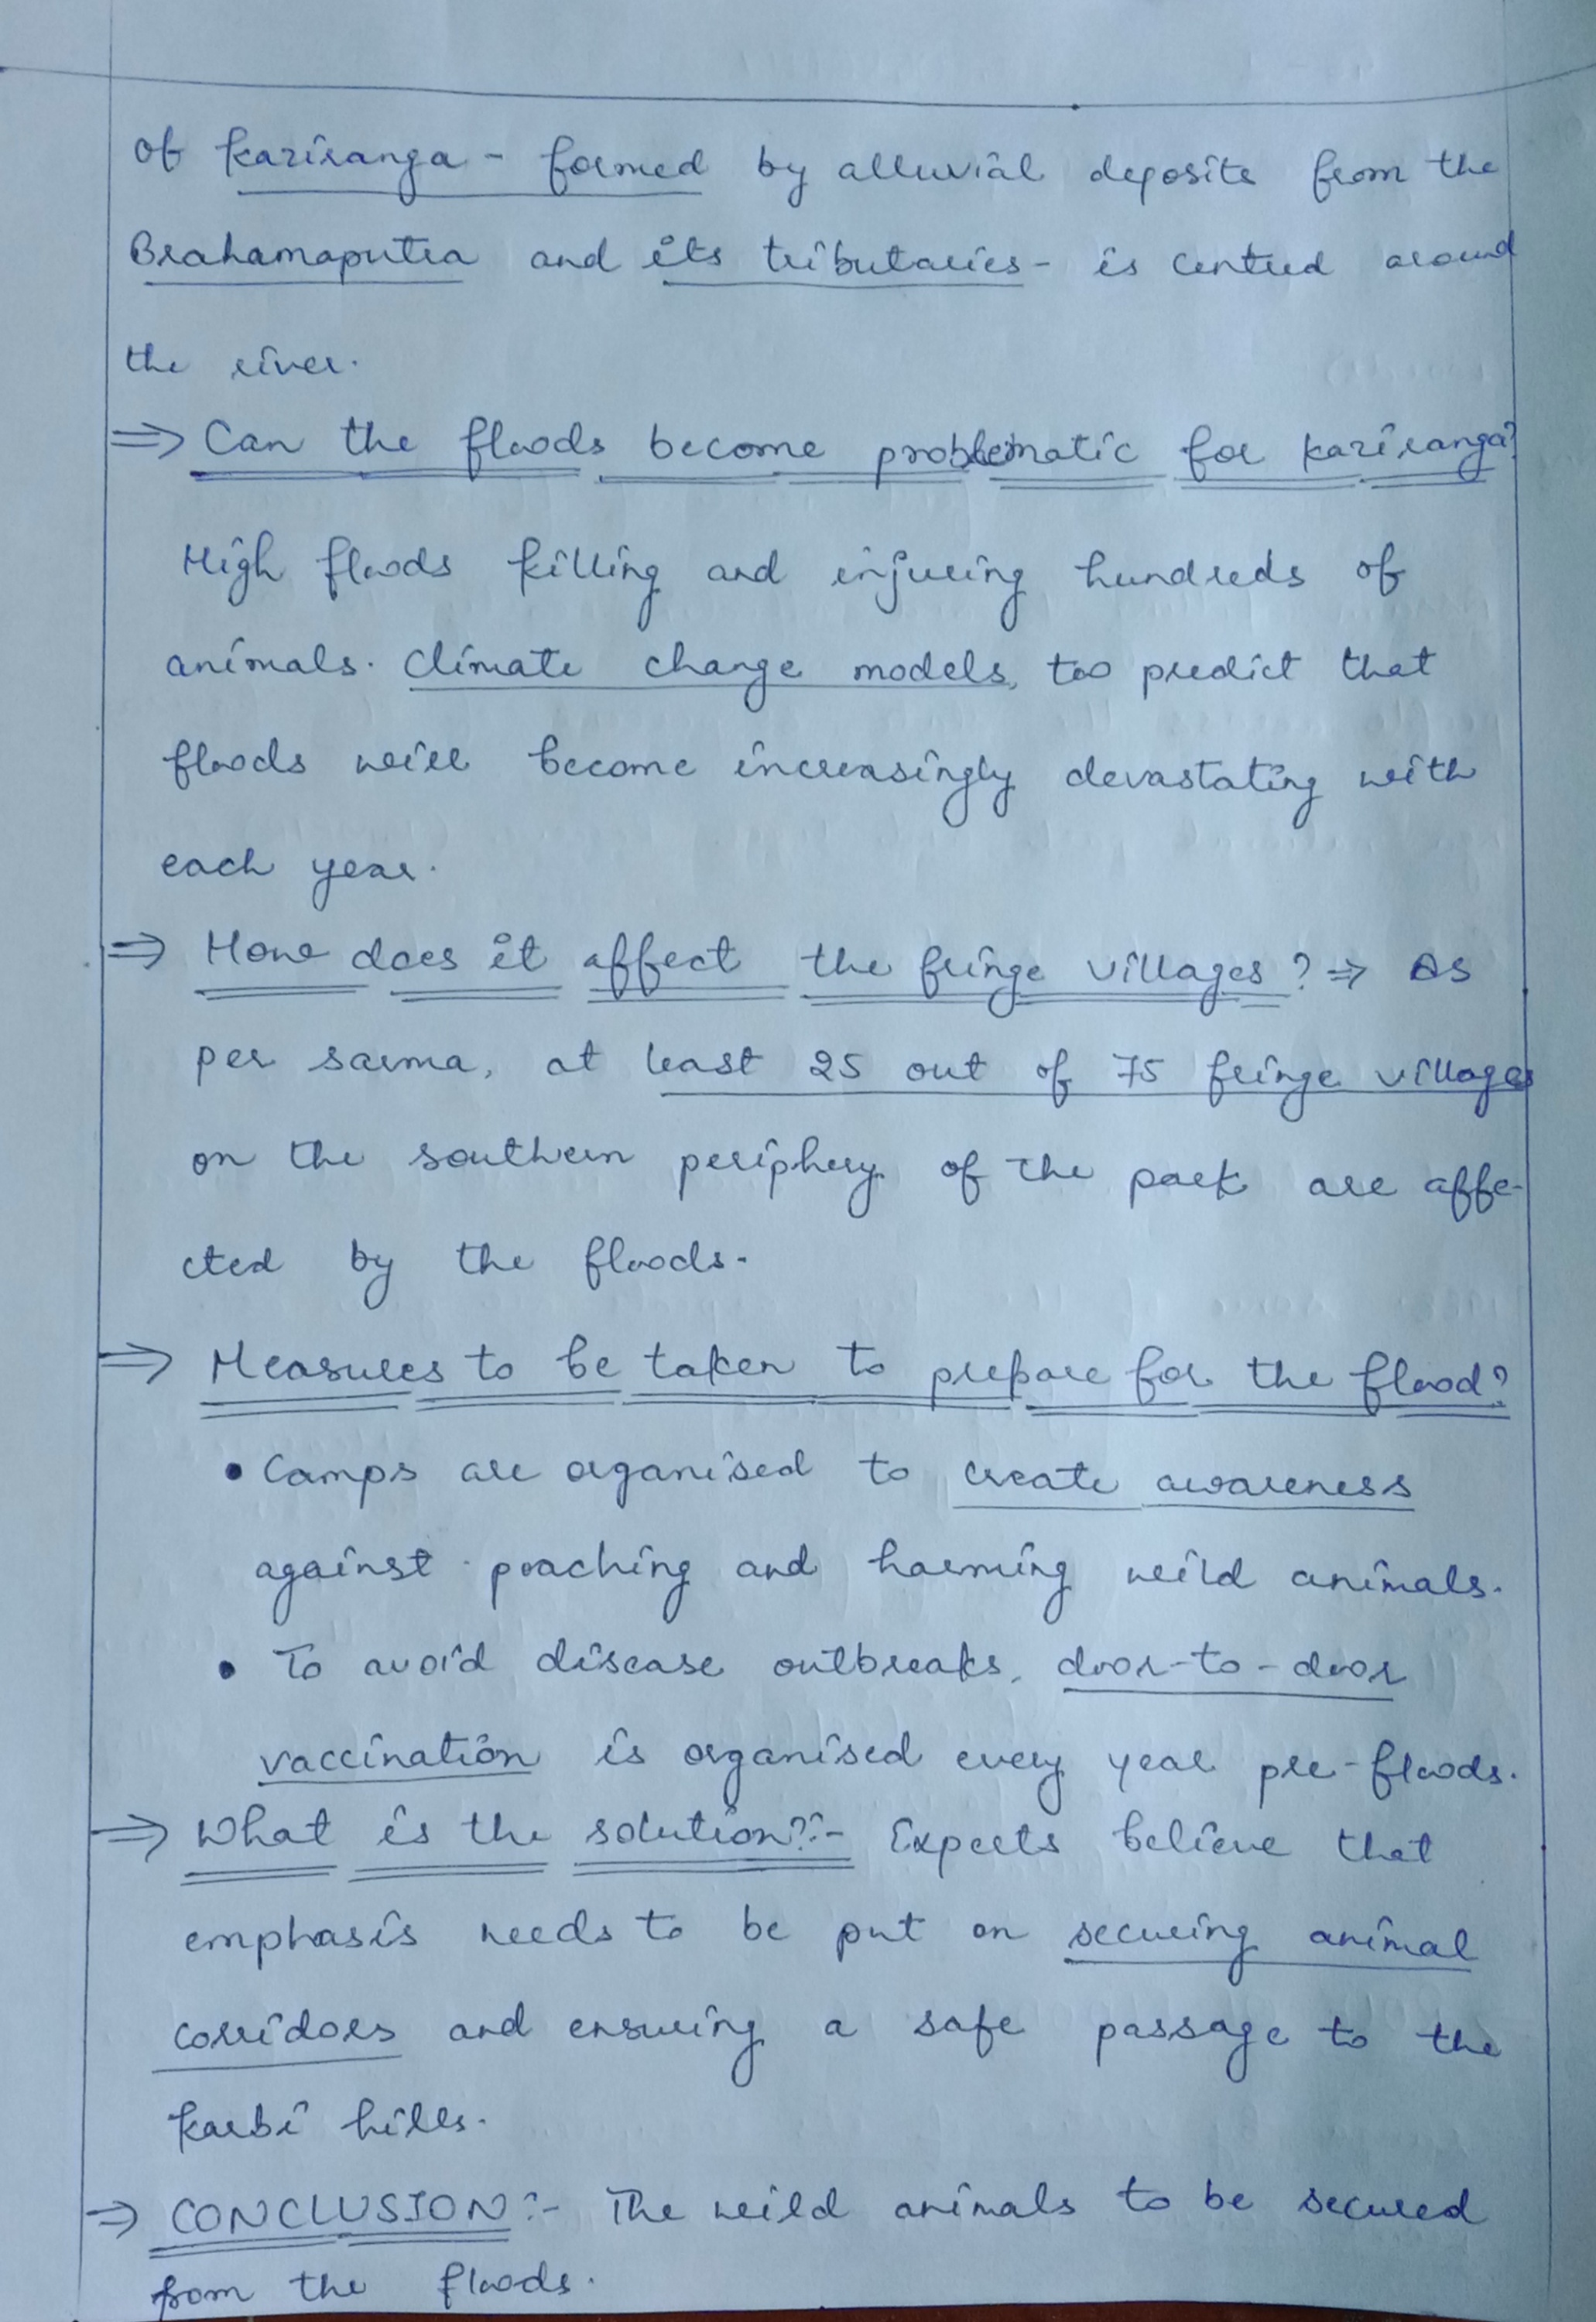 of kaziranga - formed by alluvial deposits from the
Brahamaputra and its tributaries - is centred around
the river.
⇒ Can the floods become problematic for kaziranga?
High floods killing and injuring hundreds of
animals. Climate change models, too predict that
floods will become increasingly devastating with
each year.
⇒ How does it affect the fringe villages? ⇒ As
per sarma, at least 25 out of 75 fringe villages
on the southern periphery of the park are affe-
cted by the floods.
⇒ Measures to be taken to prepare for the flood?
• Camps are organised to create awareness
against poaching and harming wild animals.
• To avoid disease outbreaks, door-to-door
vaccination is organised every year pre-floods.
⇒ What is the solution?:- Experts believe that
emphasis needs to be put on securing animal
corridors and ensuring a safe passage to the
karbi hills.
⇒ CONCLUSION:- The wild animals to be secured
from the floods.